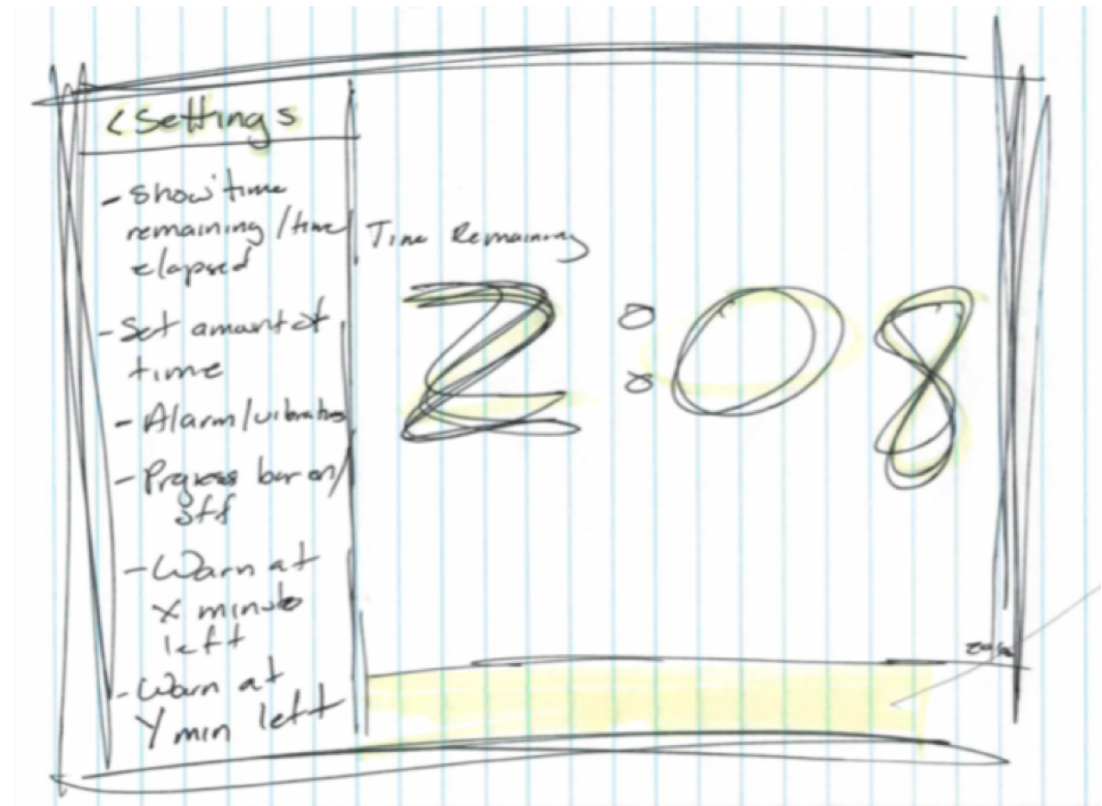 < Settings
- Show time
remaining / time
elapsed
- Set amount of
time
- Alarm / vibration
- Progress bar on/
off
- Warn at
X minute
left
- Warn at
Y min left
Time Remaining
2:08